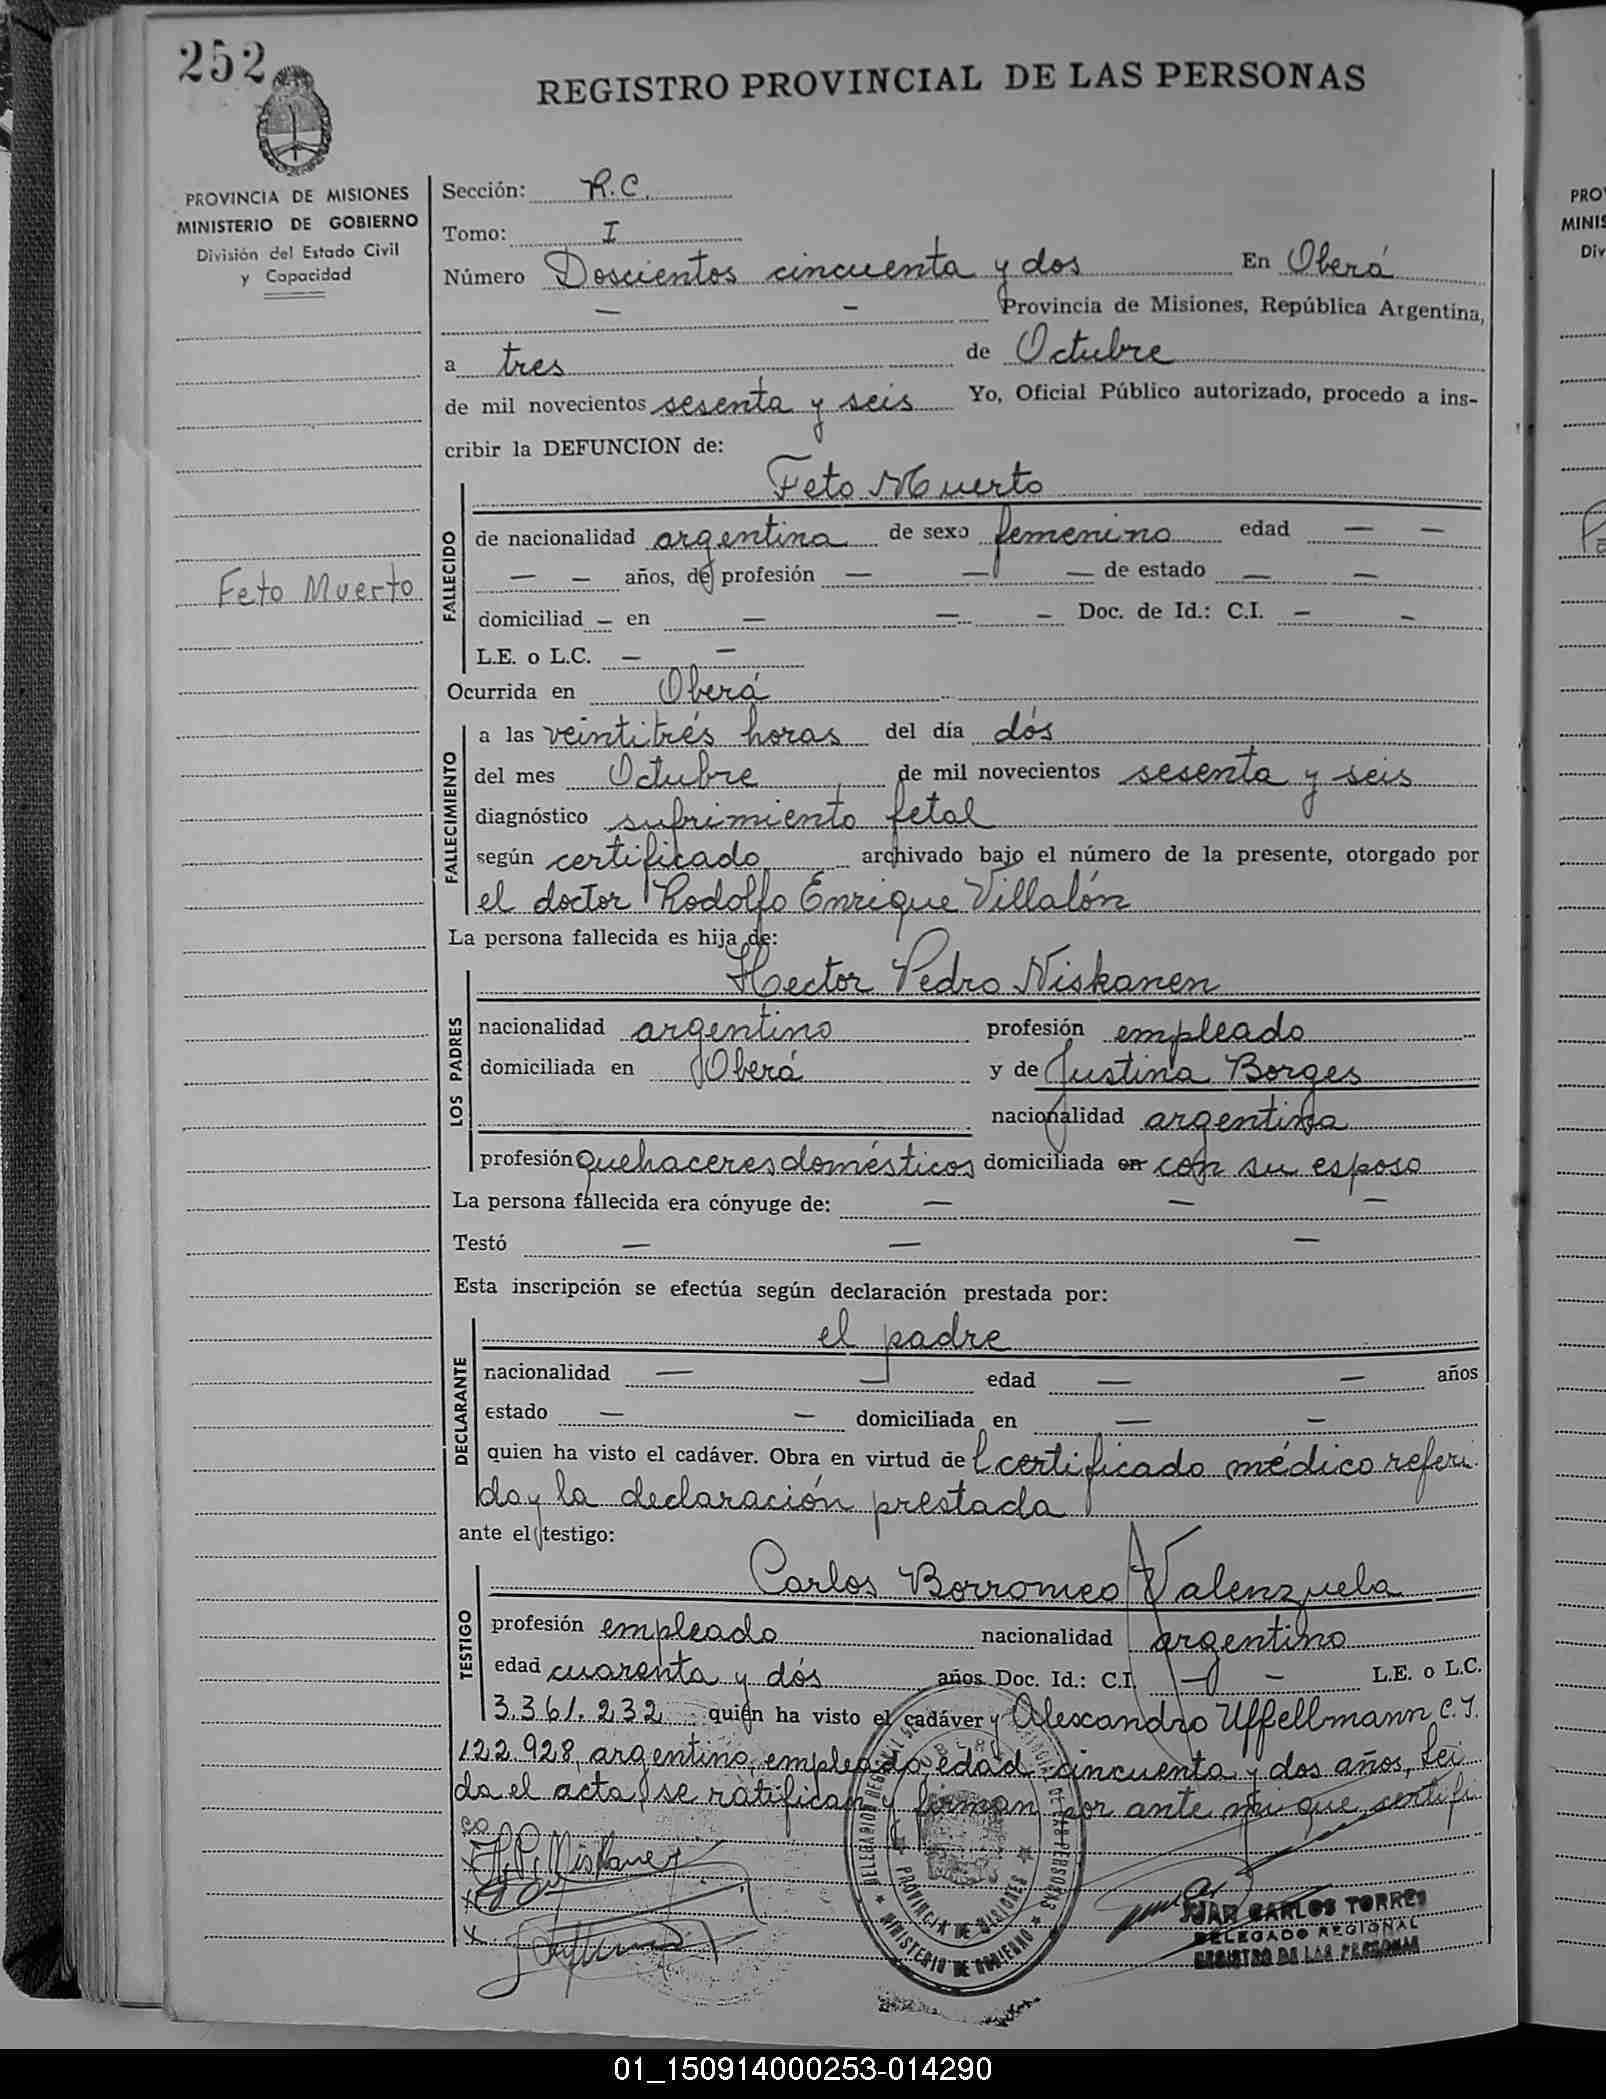 252
REGISTRO PROVINCIAL DE LAS PERSONAS
PROVINCIA DE MISIONES
MINISTERIO DE GOBIERNO
División del Estado Civil
y Capacidad
Feto Muerto
Sección: R.C.
Tomo: I
Número Doscientos cincuenta y dos En Oberá
— — Provincia de Misiones, República Argentina,
a tres de Octubre
de mil novecientos sesenta y seis Yo, Oficial Público autorizado, procedo a ins-
cribir la DEFUNCION de:
FALLECIDO
Feto Muerto
de nacionalidad argentina de sexo femenino edad — —
— — años, de profesión — — — de estado — —
domiciliad — en — — — Doc. de Id.: C.I. — —
L.E. o L.C. — —
Ocurrida en Oberá
FALLECIMIENTO
a las veintitrés horas del día dós
del mes Octubre de mil novecientos sesenta y seis
diagnóstico sufrimiento fetal
según certificado archivado bajo el número de la presente, otorgado por
el doctor Rodolfo Enrique Villalón
La persona fallecida es hija de:
LOS PADRES
Hector Pedro Niskanen
nacionalidad argentino profesión empleado
domiciliada en Oberá y de Justina Borges
nacionalidad argentina
profesión quehaceres domésticos domiciliada en con su esposo
La persona fallecida era cónyuge de: — — —
Testó — — —
Esta inscripción se efectúa según declaración prestada por:
DECLARANTE
el padre
nacionalidad — — edad — — años
estado — — domiciliada en — —
quien ha visto el cadáver. Obra en virtud del certificado médico referi
do y la declaración prestada
ante el testigo:
TESTIGO
Carlos Borromeo Valenzuela
profesión empleado nacionalidad argentino
edad cuarenta y dós años Doc. Id.: C.I. — — L.E. o L.C.
3.361.232 quien ha visto el cadáver y Alexandro Uffellmann C.I.
122.928, argentino, empleado, edad cincuenta y dos años, Lei
da el acta, se ratifican y firman por ante mi que certifi
co
x H.P. Niskanen
x
x
PROVINCIA DE MISIONES
MINISTERIO DE GOBIERNO
JUAN CARLOS TORRES
DELEGADO REGIONAL
REGISTRO DE LAS PERSONAS
PRO
MINIS
Div
01_150914000253-014290